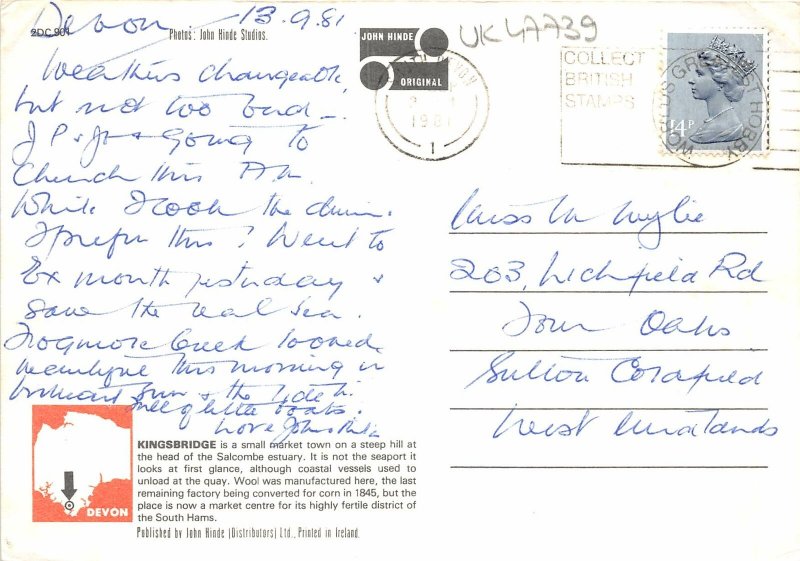 Devon 13.9.81
2DC.901
Photos: John Hinde Studios.
JOHN HINDE
ORIGINAL
UK47739
DEVON
1981
1
COLLECT
BRITISH
STAMPS
WORLD'S GREATEST HOBBY
14P
Weather is changeable
but not too bad –
J P & J + going to
Church this AM.
While I cook the dinner.
I prefer this! Went to
Exmouth yesterday &
saw the real sea.
Frogmore Creek looked
beautiful this morning in
brilliant sun & the tide in
full of little boats.
Love John
Miss M Wylie
203, Lichfield Rd
Four Oaks
Sutton Coldfield
West Midlands
DEVON
KINGSBRIDGE is a small market town on a steep hill at
the head of the Salcombe estuary. It is not the seaport it
looks at first glance, although coastal vessels used to
unload at the quay. Wool was manufactured here, the last
remaining factory being converted for corn in 1845, but the
place is now a market centre for its highly fertile district of
the South Hams.
Published by John Hinde (Distributors) Ltd., Printed in Ireland.